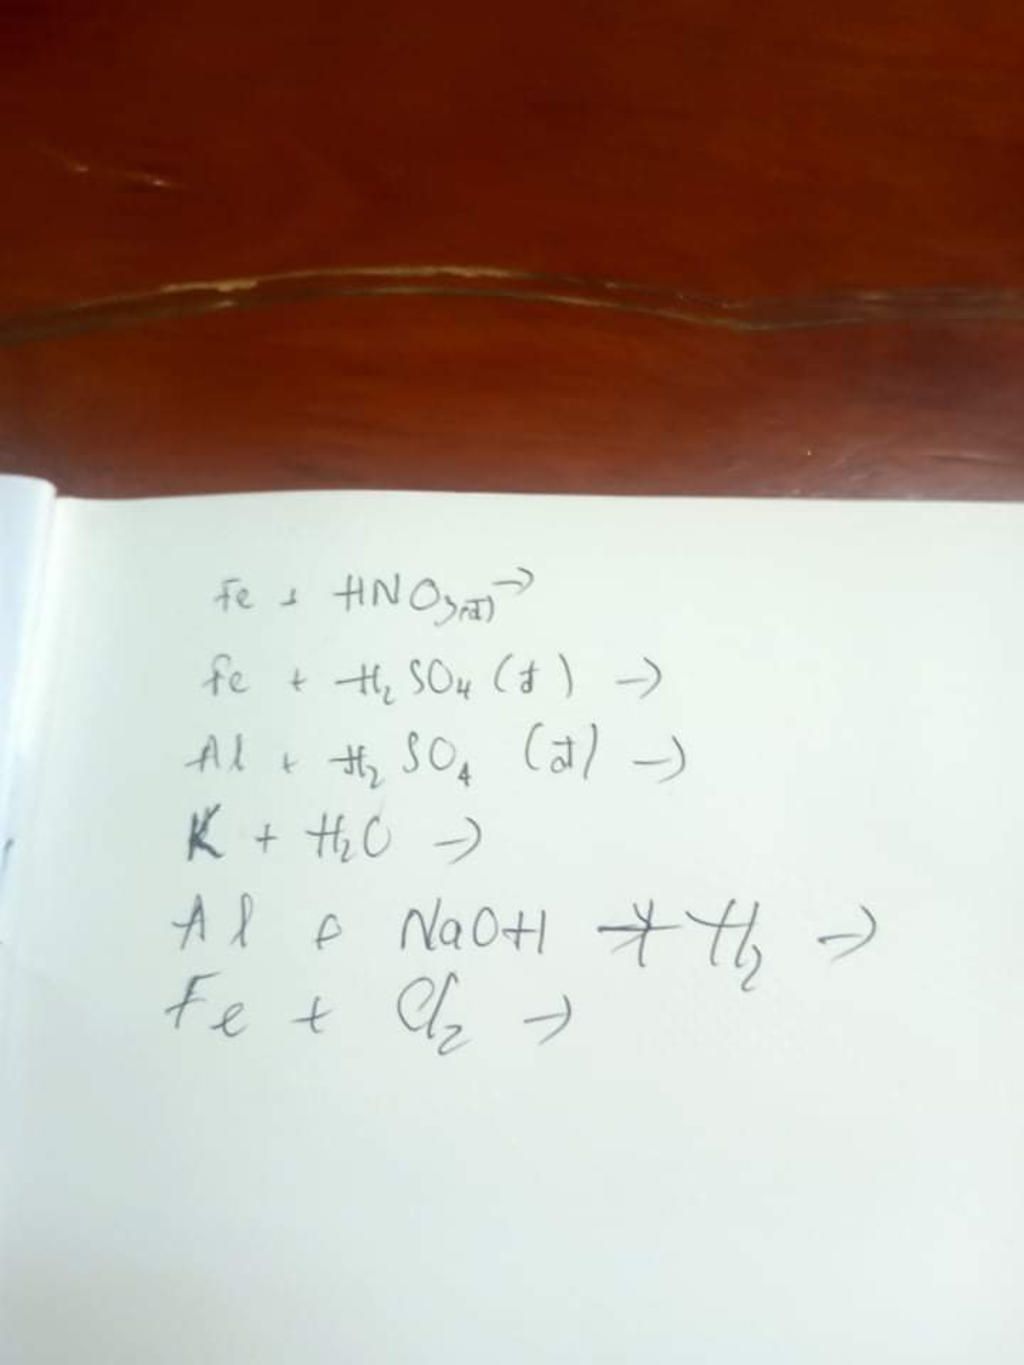 Fe + HNO₃(đ) →
Fe + H₂SO₄ (đ) →
Al + H₂SO₄ (đ) →
K + H₂O →
Al + NaOH + H₂ →
Fe + Cl₂ →